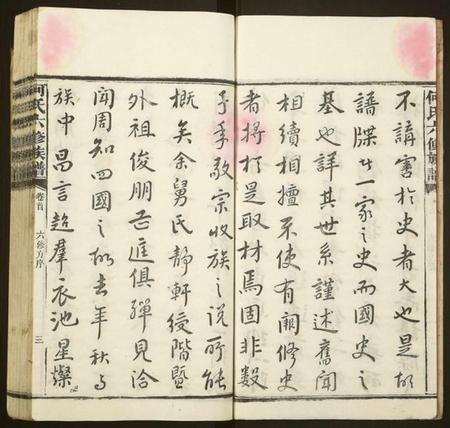 何氏六修族譜
不講害於史者大也是故
譜牒者一家之史而國史之
基也詳其世系謹述舊聞
相續相擅不使有闕修史
者將於是取材焉固非數
子孝敬宗收族之說所能
概矣余舅氏靜軒綬階暨
外祖俊朋芒匯俱殫見洽
聞周知四國之故去年秋與
族中昌言超羣衣池星燦
何氏六修族譜
卷首
六修方序
三